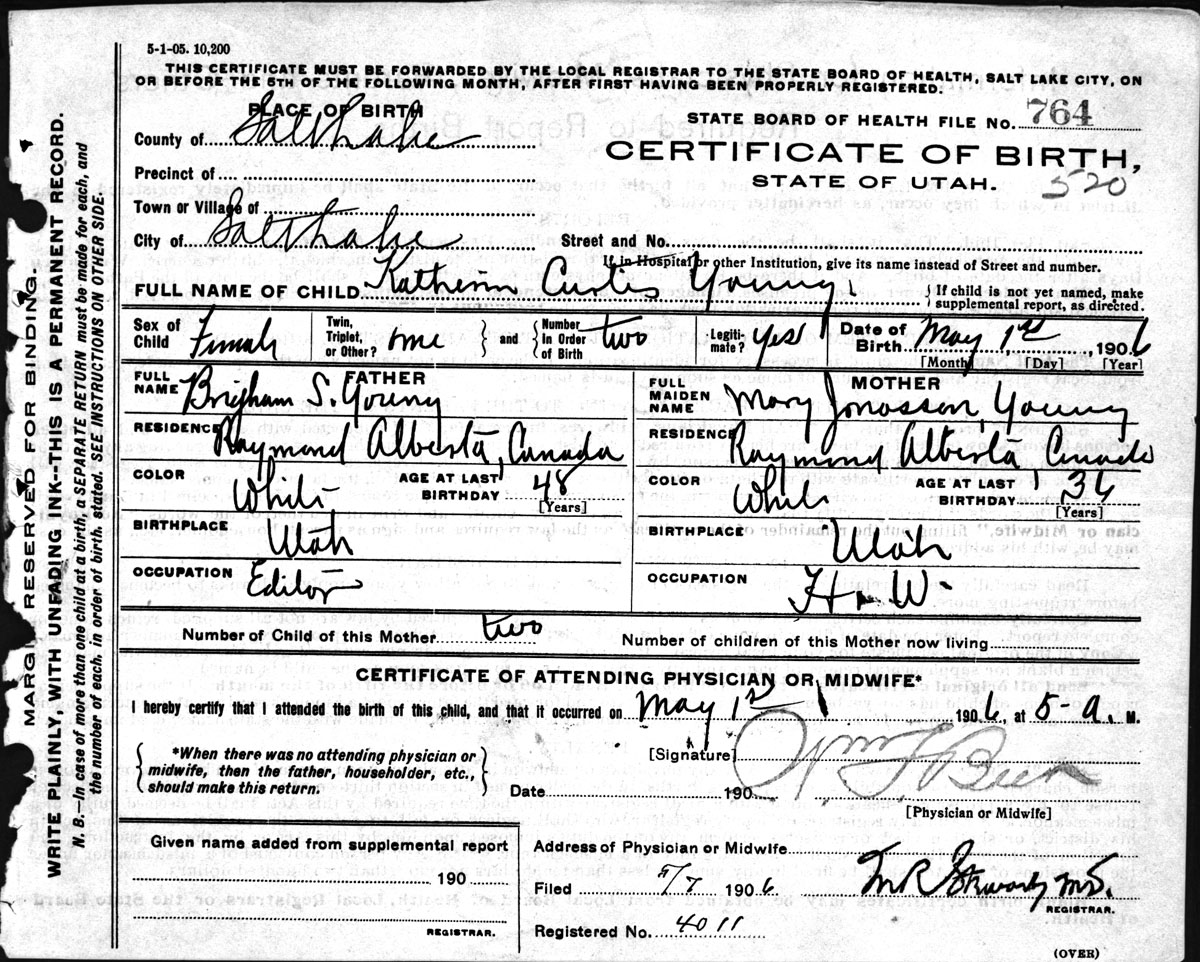 5-1-05. 10,200
THIS CERTIFICATE MUST BE FORWARDED BY THE LOCAL REGISTRAR TO THE STATE BOARD OF HEALTH, SALT LAKE CITY, ON
OR BEFORE THE 5TH OF THE FOLLOWING MONTH, AFTER FIRST HAVING BEEN PROPERLY REGISTERED.
PLACE OF BIRTH
STATE BOARD OF HEALTH FILE No. 764
County of Salt Lake
CERTIFICATE OF BIRTH,
STATE OF UTAH.
520
Precinct of
Town or Village of
City of Salt Lake Street and No.
If in Hospital or other Institution, give its name instead of Street and number.
FULL NAME OF CHILD Katherin Curtis Young
{ If child is not yet named, make
supplemental report, as directed.
Sex of Child Female Twin, Triplet, or Other? one } and { Number In Order of Birth two Legitimate? Yes Date of Birth May 1st, 1906
[Month] [Day] [Year]
FATHER
FULL NAME Brigham S. Young
RESIDENCE Raymond Alberta, Canada
COLOR White AGE AT LAST BIRTHDAY 48
[Years]
BIRTHPLACE Utah
OCCUPATION Editor
MOTHER
FULL MAIDEN NAME Mary Young
RESIDENCE Raymond Alberta, Canada
COLOR White AGE AT LAST BIRTHDAY
[Years]
BIRTHPLACE Utah
OCCUPATION H. W.
Number of Child of this Mother two Number of children of this Mother now living
CERTIFICATE OF ATTENDING PHYSICIAN OR MIDWIFE*
I hereby certify that I attended the birth of this child, and that it occurred on May 1st 1906, at 5 a. M.
{ *When there was no attending physician or
midwife, then the father, householder, etc.,
should make this return. }
[Signature]
Date 190
[Physician or Midwife]
Given name added from supplemental report
190
REGISTRAR.
Address of Physician or Midwife
Filed 5/7 1906
REGISTRAR.
Registered No. 4011
(OVER)
MARGIN RESERVED FOR BINDING.
WRITE PLAINLY, WITH UNFADING INK—THIS IS A PERMANENT RECORD.
N. B.—In case of more than one child at a birth, a SEPARATE RETURN must be made for each, and
the number of each, in order of birth, stated. SEE INSTRUCTIONS ON OTHER SIDE.